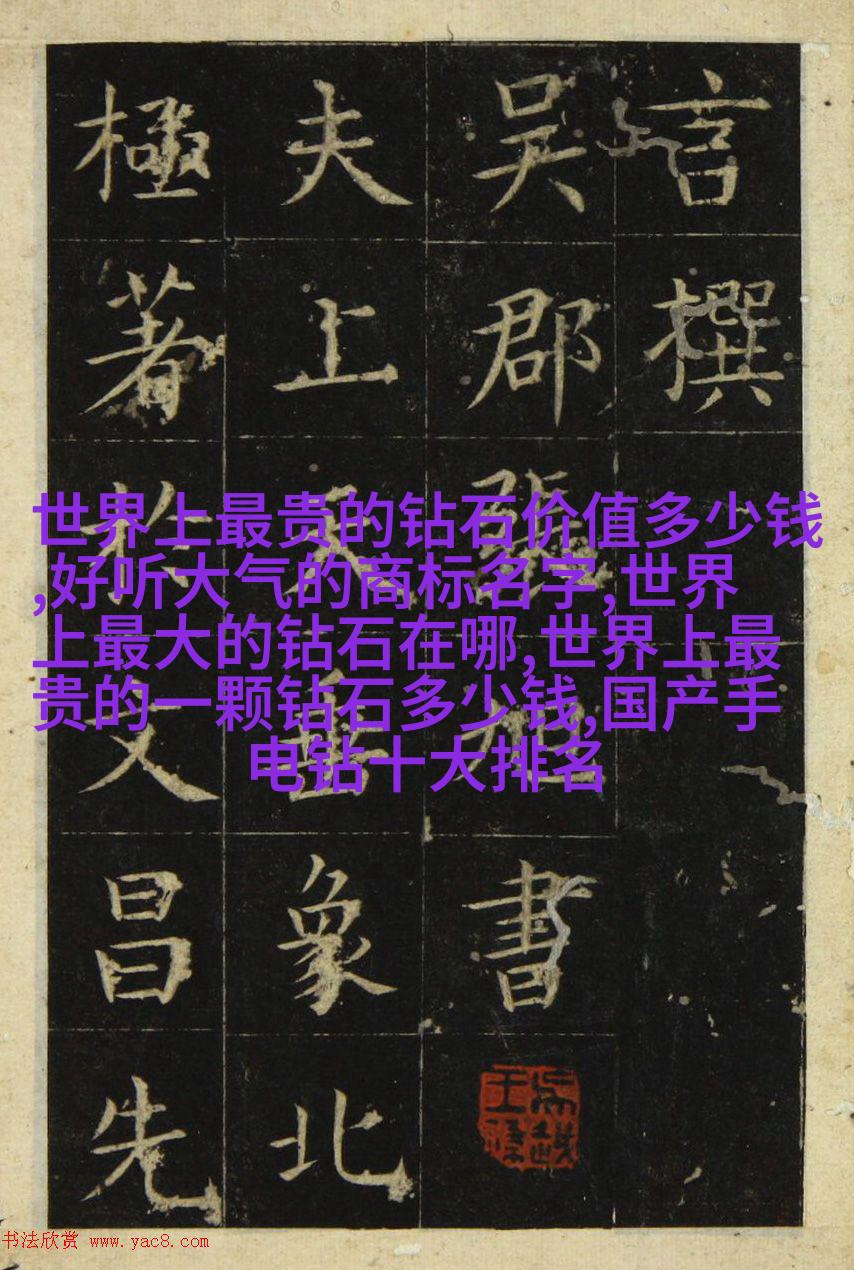 言撰
吳郡張旭書
夫上天垂象北
極著於文昌先
世界上最贵的钻石价值多少钱
,好听大气的商标名字,世界
上最大的钻石在哪,世界上最
贵的一颗钻石多少钱,国产手
电钻十大排名
书法欣赏 www.yac8.com